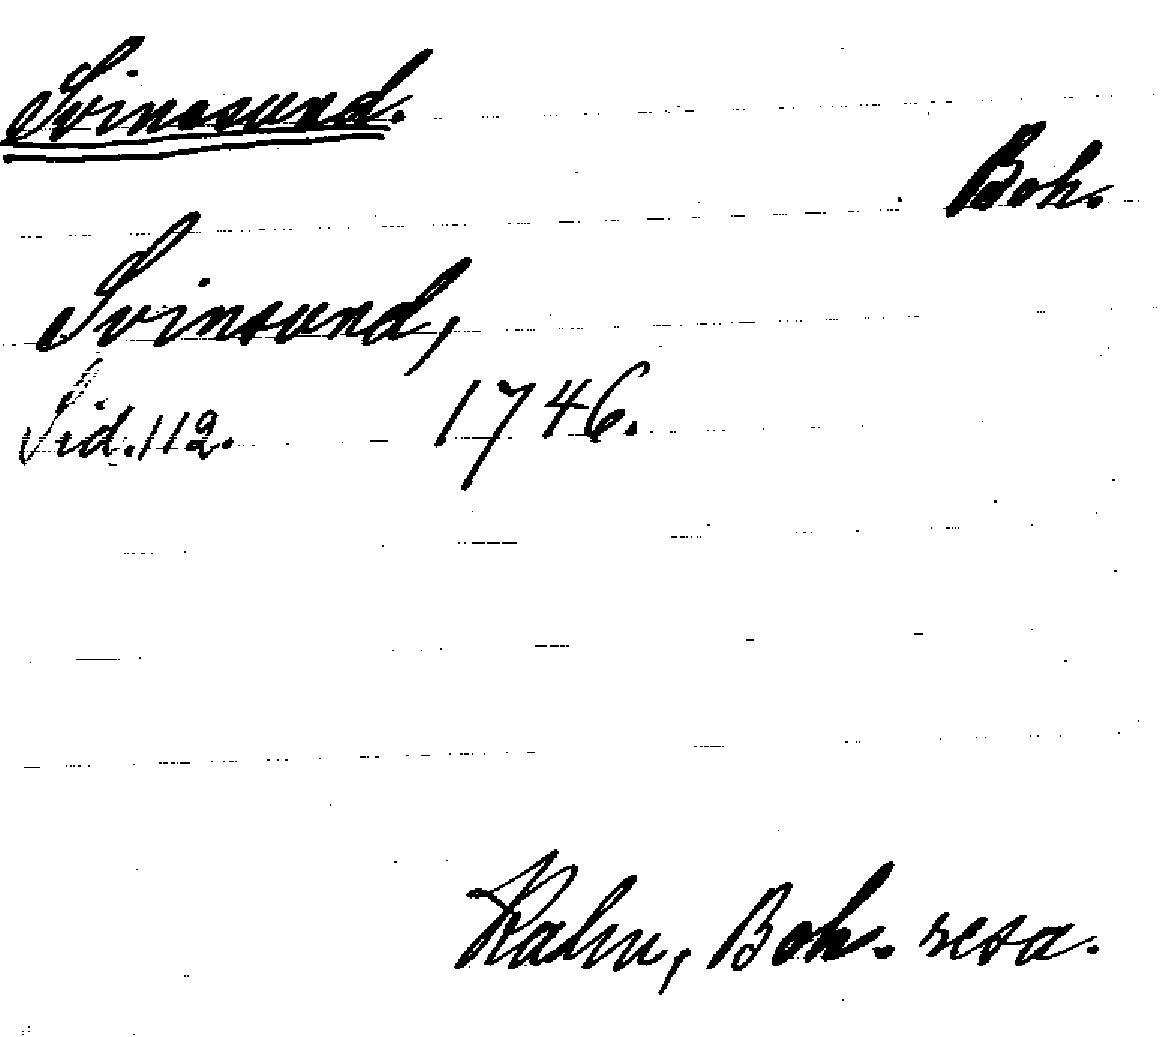 Svinesund.
Boh.
Svinsund,
Sid. 112. 1746.
Kalm, Boh. resa.